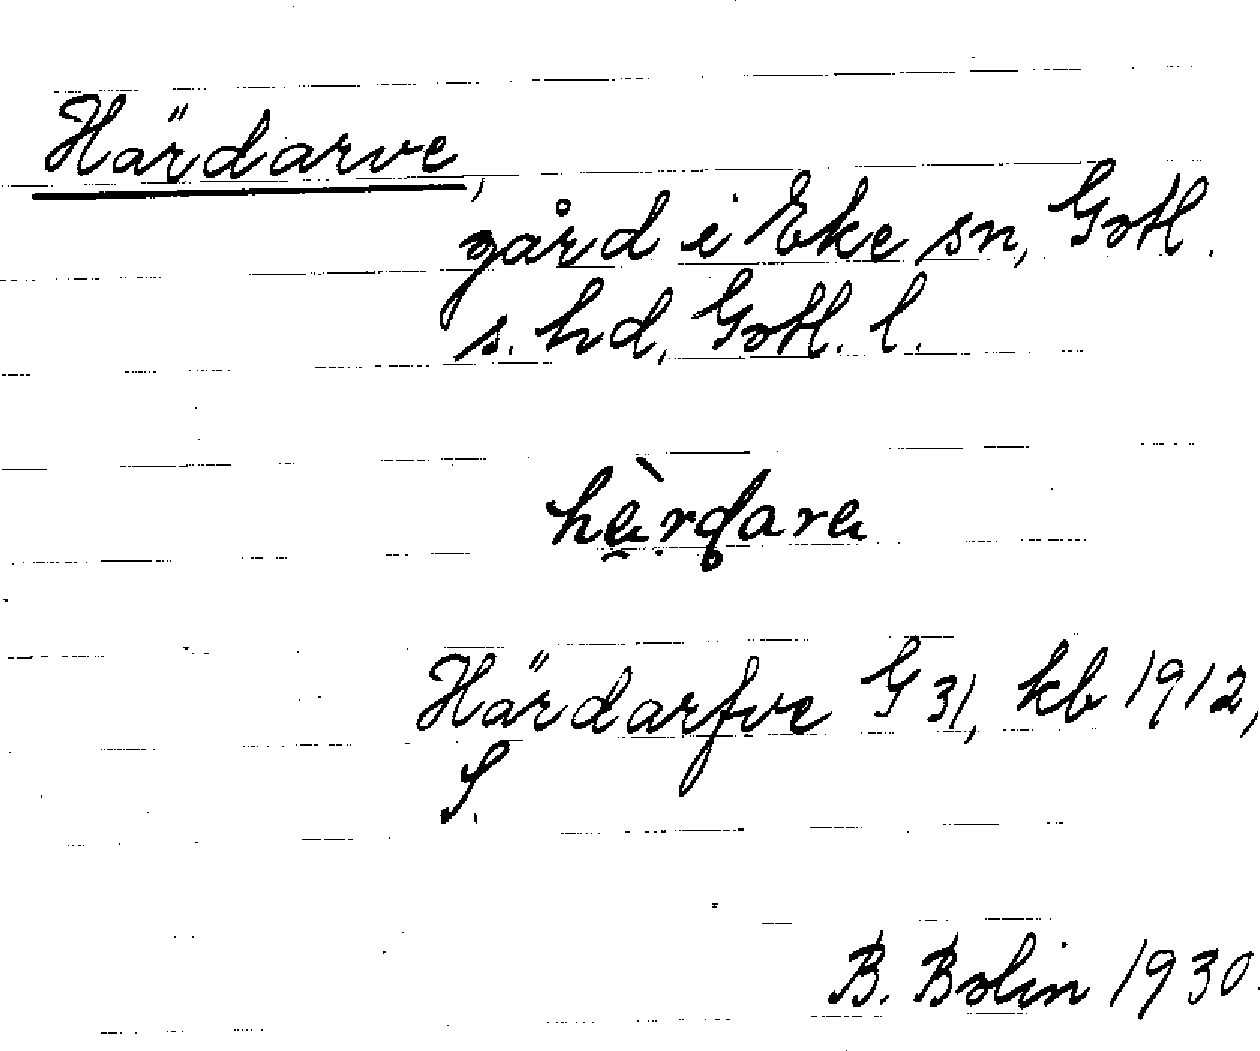 Härdarve,
gård i Eke sn, Gotl.
s. hd, Gotl. l.
Härdarfve G 31, kb 1912,
S.
B. Bolin 1930.